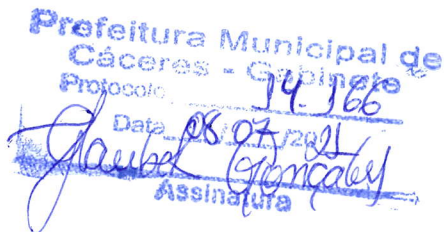 Prefeitura Municipal de
Cáceres - Gabinete
Protocolo 14.166
Data 08/07/2021
Glauber Gonçalves
Assinatura